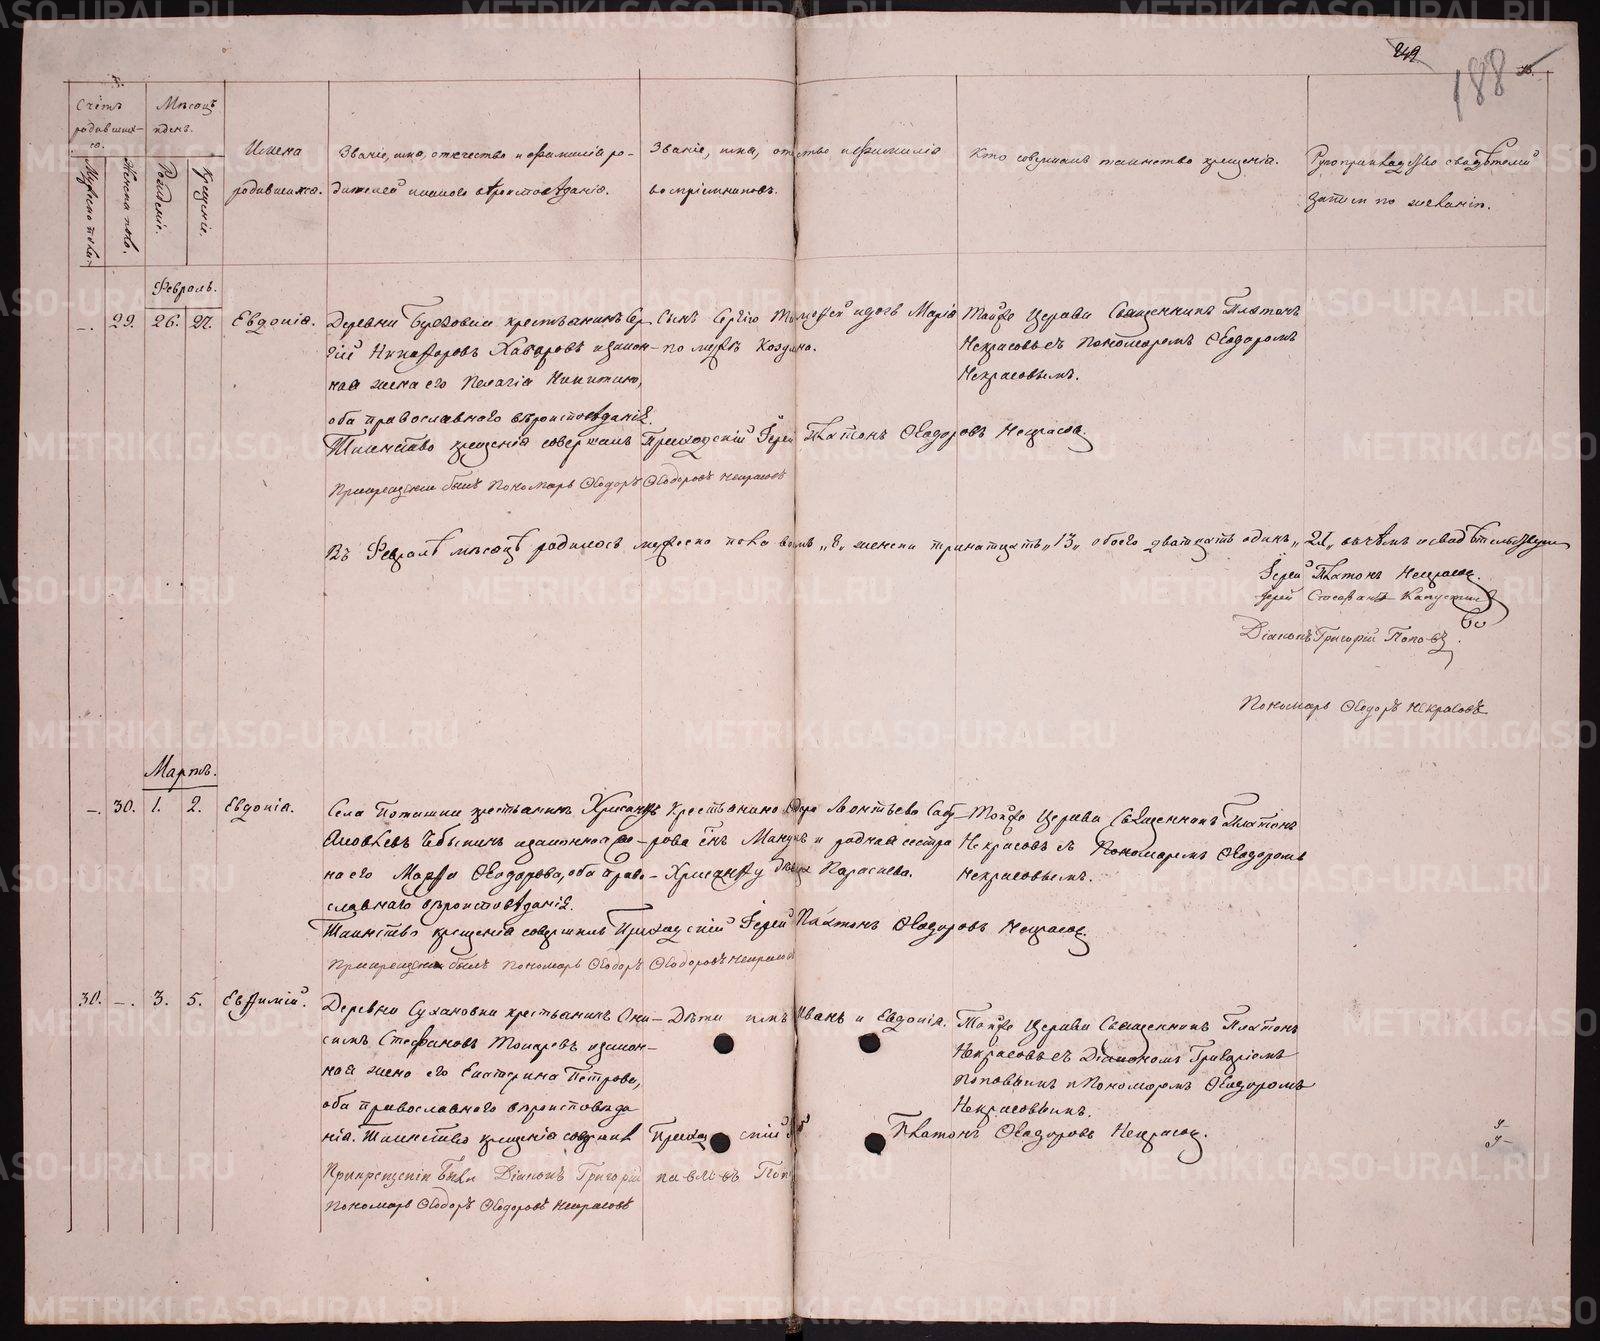 249
188
Счетъ родившихся.
Мѣсяцъ и день.
Мужеска пола.
Женска пола.
Рожденіе.
Крещеніе.
Имена
родившихся.
Званіе, имя, отчество и фамилія ро-
дителей и какого вѣроисповѣданія.
Званіе, имя, отчество и фамилія
воспріемниковъ.
Кто совершалъ таинство крещенія.
Рукоприкладство свидѣтелей
записи по желанію.
Февраль.
–. 29. 26. 27. Евдокія.
Деревни Березовки крестьянинъ Сер-
гій Никифоровъ Хабаровъ и закон-
ная жена его Пелагія Никитина,
оба православнаго вѣроисповѣданія.
Сынъ Сергіо Тимофей и дочь Марія
по мужѣ Козина.
Тойже Церкви Священникъ Платонъ
Некрасовъ съ Пономаремъ Ѳеодоромъ
Некрасовымъ.
Таинство крещенія совершалъ Приходскій Іерей Платонъ Ѳеодоровъ Некрасов.
При крещеніи былъ Пономарь Ѳеодоръ Ѳеодоровъ Некрасовъ
Въ Февралѣ мѣсяцѣ родилось мужеска пола восмь „8„ женска тринатцать „13„ обоего дватцать одинъ „21„ въ чемъ и свидѣтельствуемъ
Іерей Платонъ Некрасов.
Іерей Стефанъ Капустин
Діаконъ Григорій Поповъ.
Пономарь Ѳеодоръ Некрасовъ
Мартъ.
–. 30. 1. 2. Евдокія.
Села Поташки крестьянинъ Хрисанфъ
Яковлевъ Чебыкинъ и законная же-
на его Марфа Ѳеодорова, оба право-
славнаго вѣроисповѣданія.
Крестьянина Леонтьева
рова сынъ и родная сестра
Хрисанфу дѣвица Параскева.
Тойже Церкви Священникъ Платонъ
Некрасовъ съ Пономаремъ Ѳеодоромъ
Некрасовымъ.
Таинство крещенія совершилъ Приходскій Іерей Платонъ Ѳеодоровъ Некрасов.
При крещеніи былъ Пономарь Ѳеодоръ Ѳеодоровъ Некрасовъ
30. –. 3. 5. Евфимій.
Деревни Сухановки крестьянинъ Они-
симъ Стефановъ Токаревъ и закон-
ная жена его Екатерина Петрова,
оба православнаго вѣроисповѣда
нія.
Дѣти ихъ Иванъ и Евдокія.
Тойже Церкви Священникъ Платонъ
Некрасовъ съ Діакономъ Григоріемъ
Поповымъ и Пономаремъ Ѳеодоромъ
Некрасовымъ.
Таинство крещенія совершил Приходскій Платонъ Ѳеодоровъ Некрасов.
При крещеніи были Діаконъ Григорій Павловъ Поп
Пономарь Ѳеодоръ Ѳеодоровъ Некрасовъ
METRIKI.GASO-URAL.RU